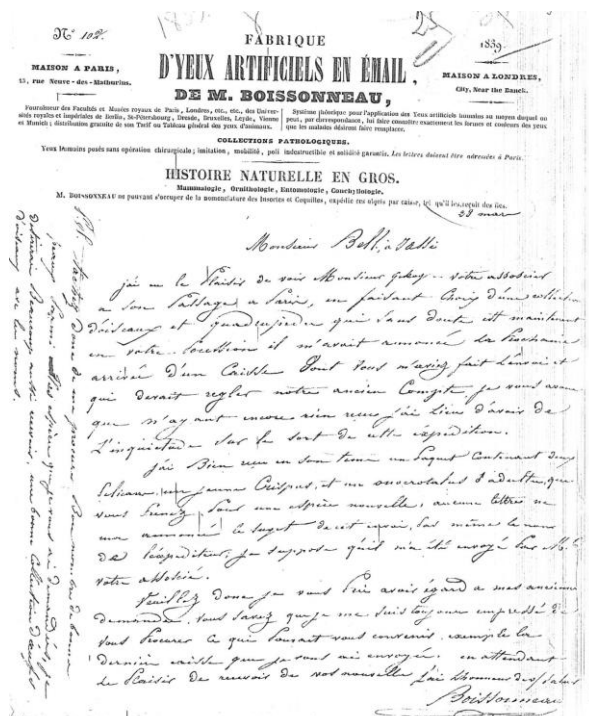 N° 102.
1839
FABRIQUE
D'YEUX ARTIFICIELS EN ÉMAIL,
DE M. BOISSONNEAU,
MAISON A PARIS,
rue Neuve-des-Mathurins.
MAISON A LONDRES,
City, Near the Banck.
Fournisseur des Facultés et Musées royaux de Paris, Londres, etc., etc., des Univer-
sités royales et impériales de Berlin, St-Pétersbourg, Dresde, Bruxelles, Leyde, Vienne
et Munich; distribution gratuite de son Tarif ou Tableau général des yeux d'animaux.
Système phénotype pour l'application des Yeux artificiels humains au moyen duquel on
peut, par correspondance, lui faire connaître exactement les formes et couleurs des yeux
que les malades désirent faire remplacer.
COLLECTIONS PATHOLOGIQUES.
Yeux humains posés sans opération chirurgicale; imitation, mobilité, poli indestructible et solidité garantis. Les lettres doivent être adressées à Paris.
HISTOIRE NATURELLE EN GROS.
Mammalogie, Ornithologie, Entomologie, Conchyliologie.
M. BOISSONNEAU ne pouvant s'occuper de la nomenclature des Insectes et Coquilles, expédie ces objets par caisse, tel qu'il les reçoit des îles.
28 mar
Monsieur Bell, à Jassi
j'ai eu le Plaisir de voir Monsieur votre associer
a son Passage a Paris, en faisant Choix d'une collection
d'oiseaux et quadrupedes qui sans doute est maintenant
en votre Possession il m'avait annoncé la Prochaine
arrivée d'un Caisse dont vous m'aviez fait l'envoi et
qui devait regler notre ancien Compte, je vous avoue
que n'ayant encore rien reçu j'ai Lieu d'avoir de
L'inquietude sur le sort de cette expedition.
j'ai Bien reçu en son tems un Paquet Contenant deux
Pelican, un jeune Crispus, et un onocrotalus adulte, que
vous Prenez Pour une espèce nouvelle, aucune lettres ne
m'a annoncé le sujet de cet envoi, Pas même le nom
de l'expediteur, je suppose qu'il m'a été envoyé Par Mr
votre associé.
Veuillez donc je vous Prie avoir égard a mes ancienne
demande, vous savez que je me suis toujours empressé de
vous Procurer ce qui Pouvait vous convenir, exemple la
derniere caisse que je vous ai envoyée. en attendant
le Plaisir de recevoir de vos nouvelle j'ai l'honneur de vs saluer
Boissonneau
P.S. Tachez donc de me procurer Bon nombre de bonne
peaux Parmi les espèce que je vous ai demandées, je
desirerais Beaucoup aussi recevoir une bonne Collection d'œufs
d'oiseaux avec les noms.